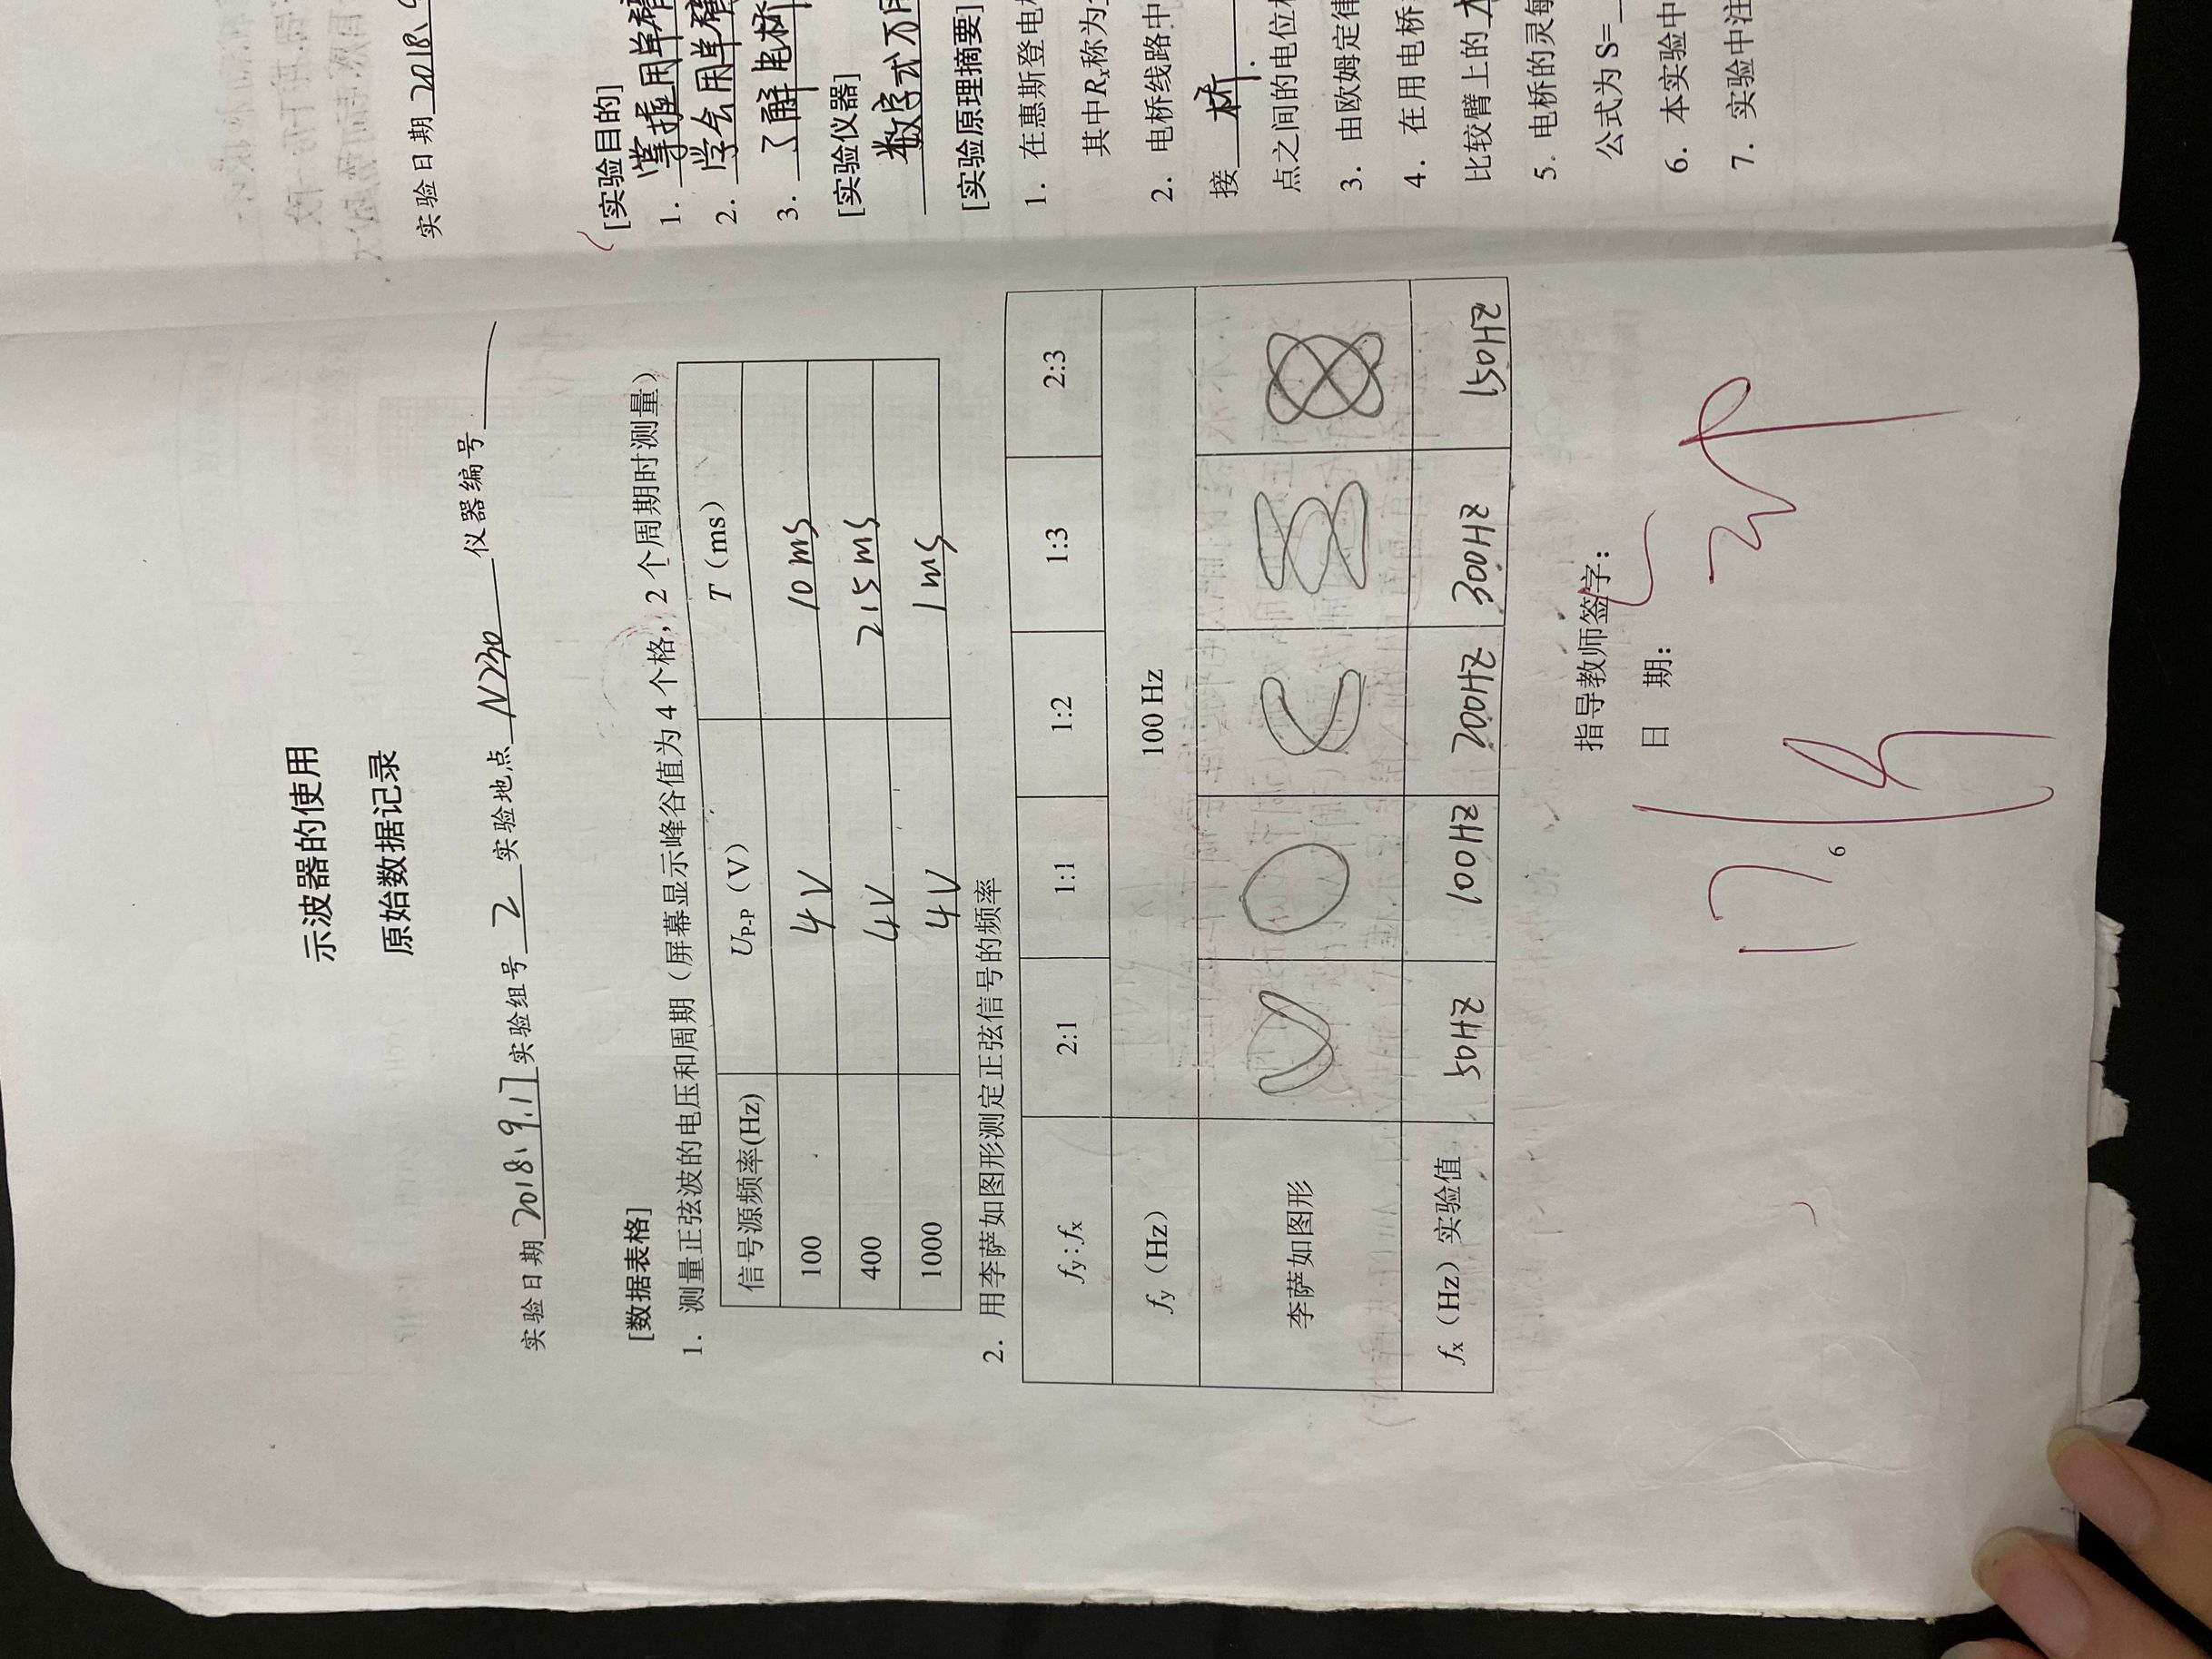 示波器的使用
原始数据记录
实验日期 2018.9.17 实验组号 2 实验地点 N230 仪器编号
[数据表格]
1. 测量正弦波的电压和周期（屏幕显示峰谷值为 4 个格，2 个周期时测量）
信号源频率(Hz) UP-P（V） T（ms）
100 4V 10ms
400 4V 2.5ms
1000 4V 1ms
2. 用李萨如图形测定正弦信号的频率
fy:fx 2:1 1:1 1:2 1:3 2:3
fy（Hz） 100 Hz
李萨如图形
fx（Hz）实验值 50HZ 100HZ 200HZ 300HZ 150HZ
指导教师签字：
日 期：
17/9
6
实验日期 2018.
[实验目的]
1. 掌握用单臂
2. 学会用单臂
3. 了解电桥
[实验仪器]
数字式万用
[实验原理摘要]
1. 在惠斯登电桥
其中Rx称为
2. 电桥线路中
接 桥.
点之间的电位
3. 由欧姆定律
4. 在用电桥
比较臂上的
5. 电桥的灵敏
公式为 S=
6. 本实验中
7. 实验中注